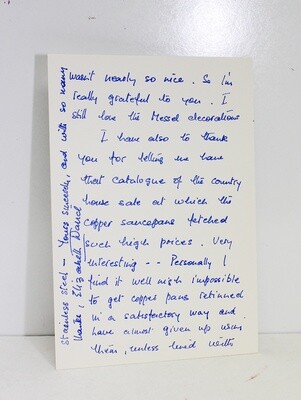 wasn't nearly so nice. So I'm
really grateful to you. I
still love the Messel decorations
I have also to thank
you for letting me have
that catalogue of the country
house sale at which the
copper saucepans fetched
such high prices. Very
interesting -- Personally I
find it well nigh impossible
to get copper pans retinned
in a satisfactory way and
have almost given up using
them, unless lined with
stainless steel — Yours sincerely, and with so many
thanks, Elizabeth David